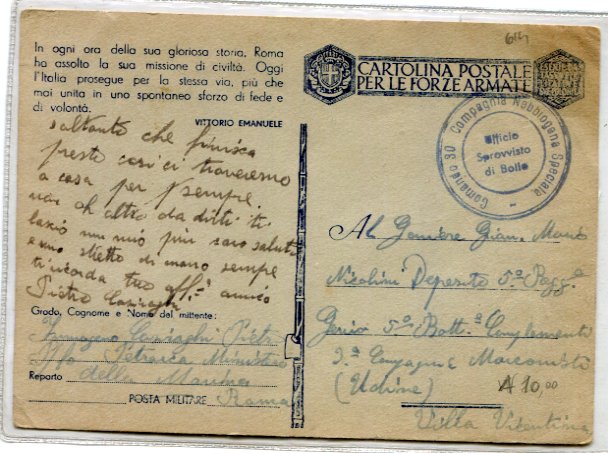 614
In ogni ora della sua gloriosa storia, Roma
ha assolto la sua missione di civiltà. Oggi
l'Italia prosegue per la stessa via, più che
mai unita in uno spontaneo sforzo di fede e
di volontà.
VITTORIO EMANUELE
CARTOLINA POSTALE
PER LE FORZE ARMATE
Comando 30 Compagnia Nebbiogena Speciale
Ufficio
Sprovvisto
di Bollo
soltanto che finisca
presto così ci troveremo
a casa per sempre
altro da dirti ti
più cari saluti
stretta di mano sempre
ti ricorda tuo aff. amico
Pietro
Grado, Cognome e Nome del mittente:
Pietro
Ministero
Reparto della Marina
POSTA MILITARE Roma
Al Geniere Gian. Mario
Nicolini Deposito 5º Regg.
Genio 5º Batt. Complementi
3ª Compagnia Marconisti
(Udine)
A 10,00
Villa Vicentina